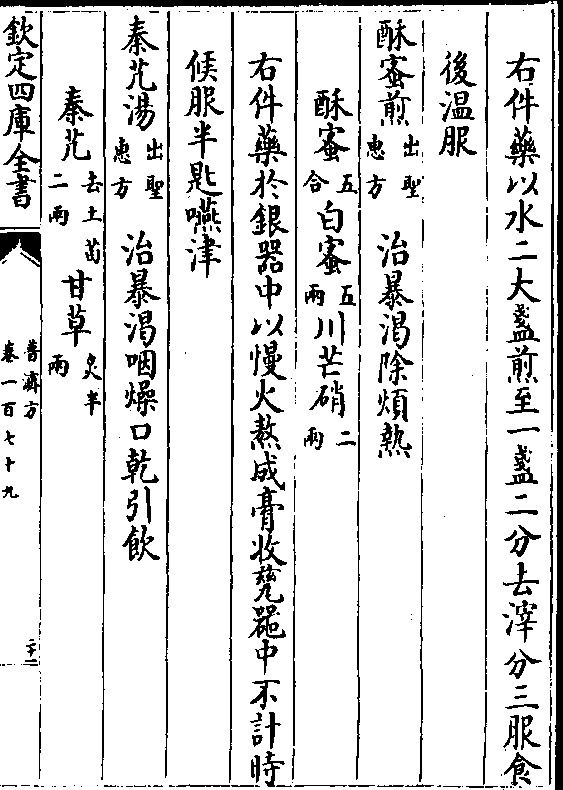 右件藥以水二大盞煎至一盞二分去滓分三服食
後温服
酥蜜煎出聖惠方 治暴渴除煩熱
酥蜜五合白蜜五兩川芒硝二兩
右件藥於銀器中以慢火熬成膏收甆器中不計時
候服半匙嚥津
秦艽湯出聖惠方 治暴渴咽燥口乾引飲
秦艽去土苗二兩甘草炙半兩
欽定四庫全書 普濟方卷一百七十九 二十一